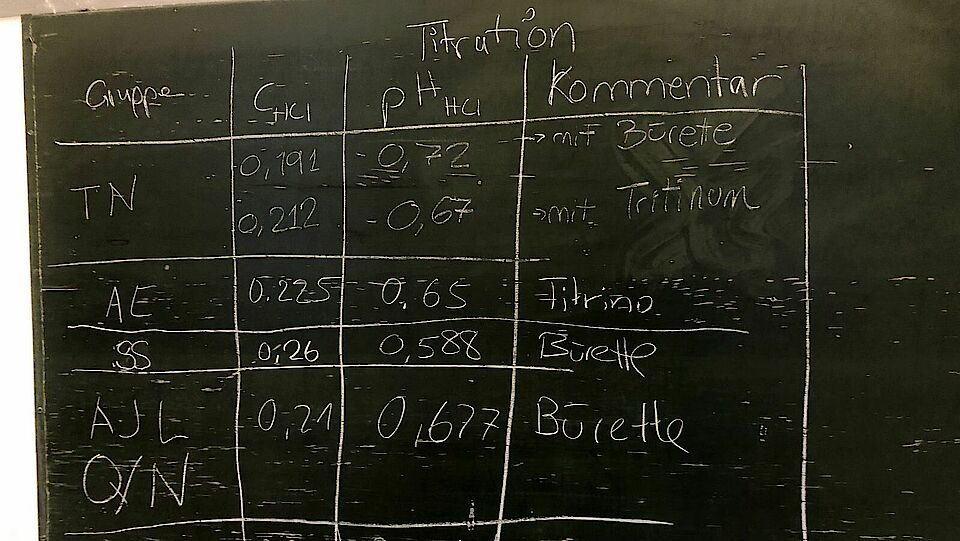 Titration
Gruppe C_HCl pH_HCl Kommentar
0,191 -0,72 → mit Bürete
TN
0,212 -0,67 → mit Tritinum
AE 0.225 0.65 Titrino
SS 0,26 0,588 Bürette
AJL 0,21 0,677 Bürette
Q/N